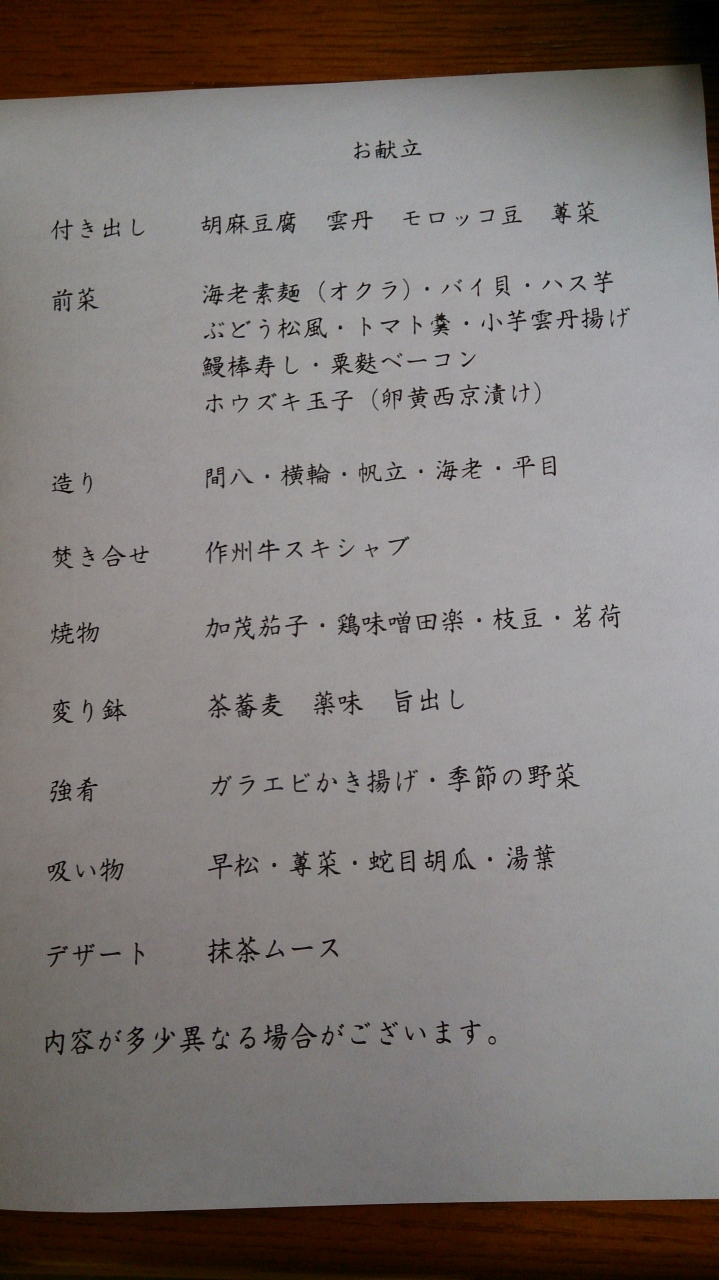 お献立
付き出し 胡麻豆腐 雲丹 モロッコ豆 蓴菜
前菜 海老素麺（オクラ）・バイ貝・ハス芋
ぶどう松風・トマト羹・小芋雲丹揚げ
鰻棒寿し・粟麩ベーコン
ホウズキ玉子（卵黄西京漬け）
造り 間八・横輪・帆立・海老・平目
焚き合せ 作州牛スキシャブ
焼物 加茂茄子・鶏味噌田楽・枝豆・茗荷
変り鉢 茶蕎麦 薬味 旨出し
強肴 ガラエビかき揚げ・季節の野菜
吸い物 早松・蓴菜・蛇目胡瓜・湯葉
デザート 抹茶ムース
内容が多少異なる場合がございます。